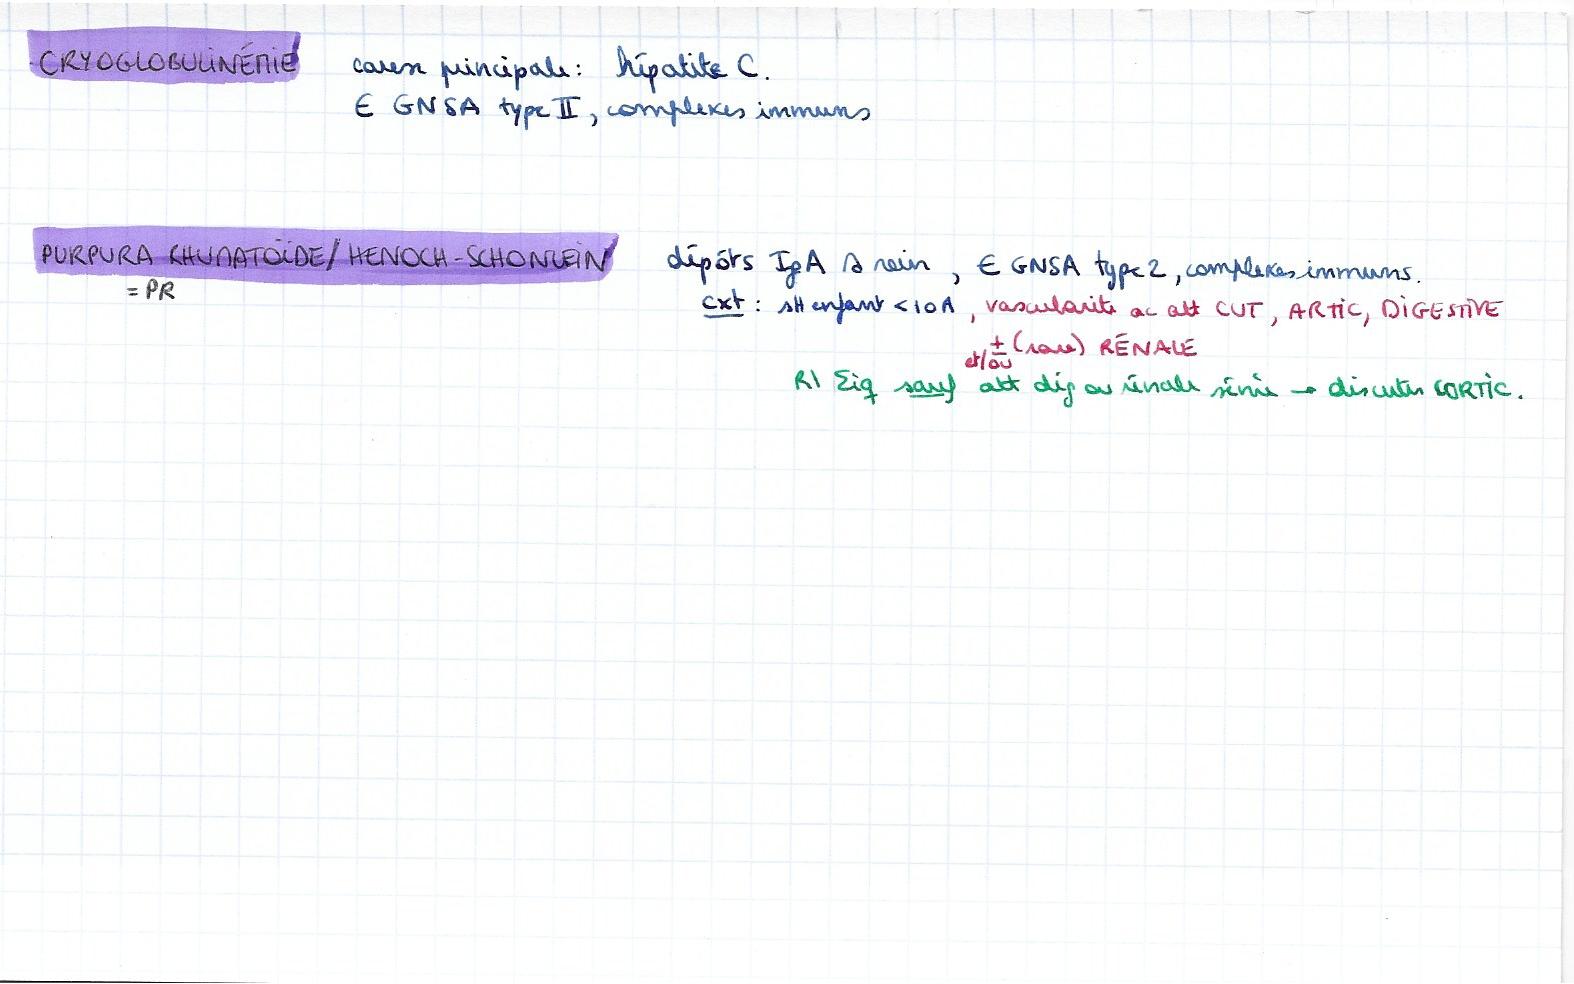 CRYOGLOBULINÉMIE cause principale: hépatite C.
∈ GNSA type II, complexes immuns
PURPURA RHUMATOÏDE/HENOCH-SCHONLEIN dépôts IgA ds rein, ∈ GNSA type 2, complexes immuns.
= PR
cxt: st enfant <10A, vascularite ac att CUT, ARTIC, DIGESTIVE
et/ou ± (rare) RÉNALE
R\ Σiq sauf att dig ou rénale sévère → discuter CORTIC.